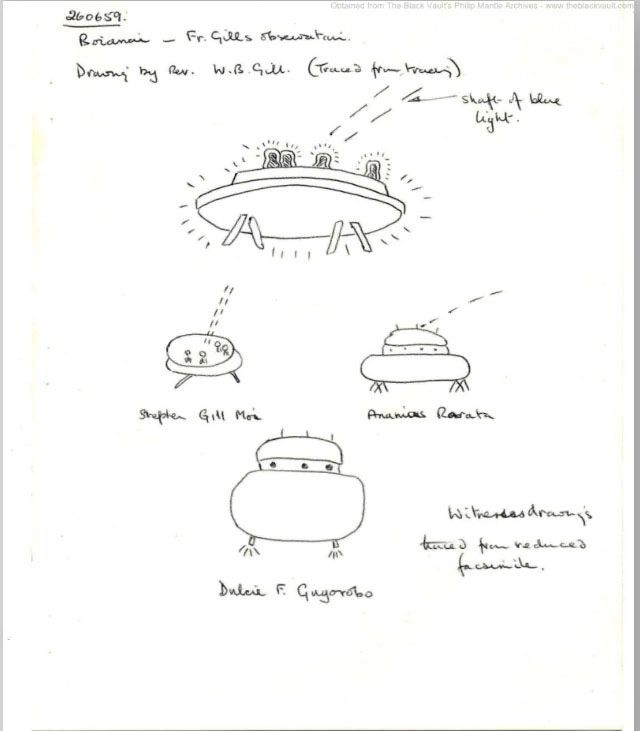 Obtained from The Black Vault's Philip Mantle Archives - www.theblackvault.com
260659.
Boianai – Fr. Gill's observation.
Drawing by Rev. W.B. Gill. (Traced from tracing)
shaft of blue
light.
Stephen Gill Moi
Ananias Rarata
Witnesses drawings
traced from reduced
facsimile.
Dulcie F. Guyorobo